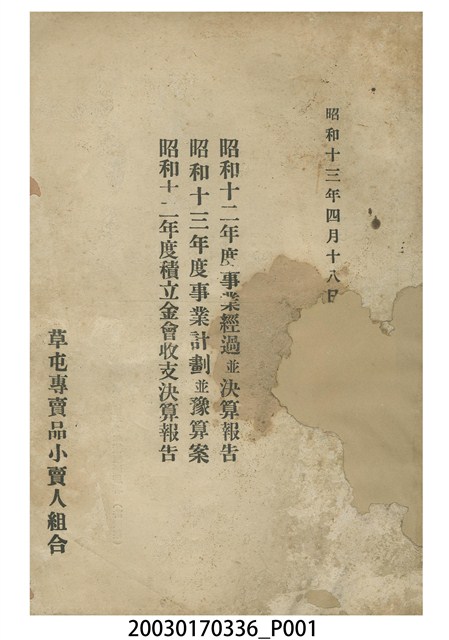 昭和十三年四月十八日
昭和十二年度事業經過並決算報告
昭和十三年度事業計劃並豫算案
昭和十二年度積立金會收支決算報告
草屯專賣品小賣人組合
20030170336_P001